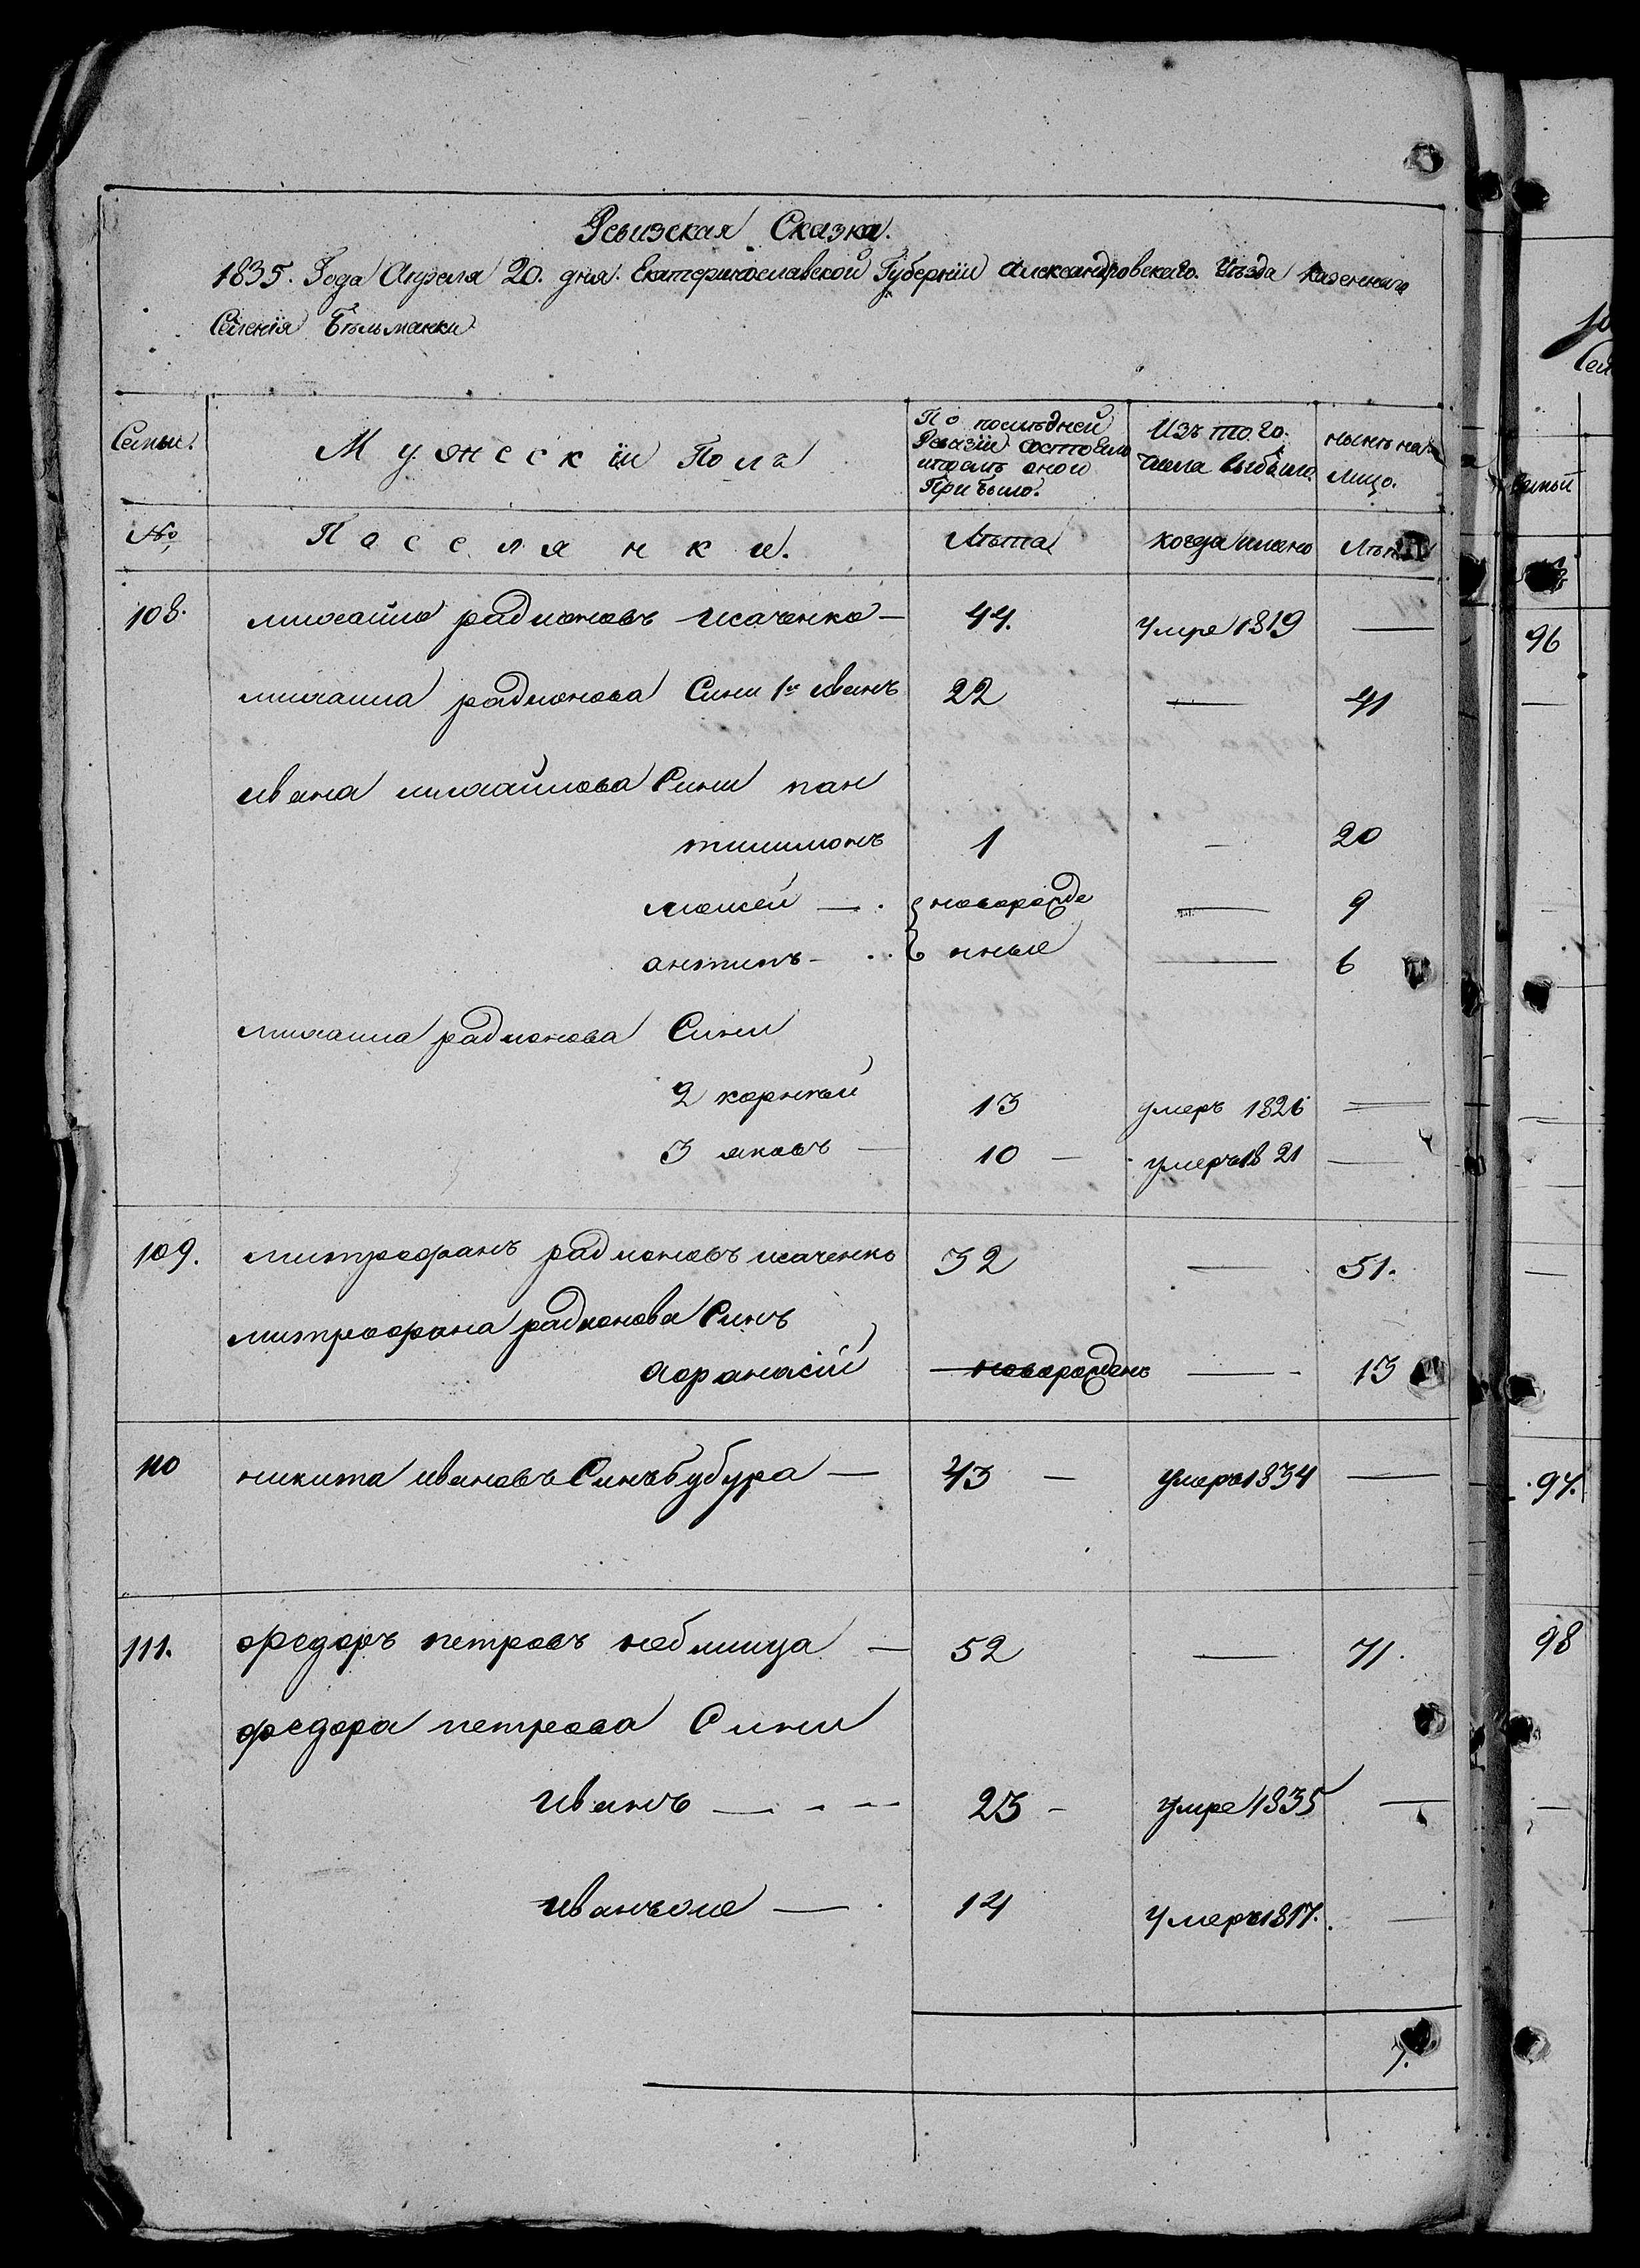 Ревизская Сказка.
1835. Года Апреля 20. дня. Екатеринославской Губернии Александровского. Уезда казенного
Селения Бѣльманки
Семьи. Мужеский Полъ По последней Ревизии состояло и после оной Прибыло. Изъ того. числа выбыло. нынѣ на лицо.
№ Поселянки. Лѣта когда имено Лѣта
108. михайло радионовъ исаченко — 44. Умре 1819 —
михаила радионова Сини 1й иванъ 22 — 41
ивана михайлова Сини пан
тилимонъ 1 — 20
моисей — . новорожде — 9
антипъ — . . нные — 6
михаила радионова Сини
2 корнѣй 13 умеръ 1826 —
3 яковъ — 10 — умеръ 1821 —
109. митрофанъ радионовъ исаченко 32 — 51.
митрофана радионова Синъ
афанасій — новорожденъ — 13
110 никита ивановъ Синъ бубура — 43 — умеръ 1834 —
111. федоръ петровъ небилица — 52 — 71.
федора петрова Сини
иванъ — — — 23 — умре 1835 —
иванъ же — . 14 Умеръ 1817. —
7.
Семьи
96
97.
98